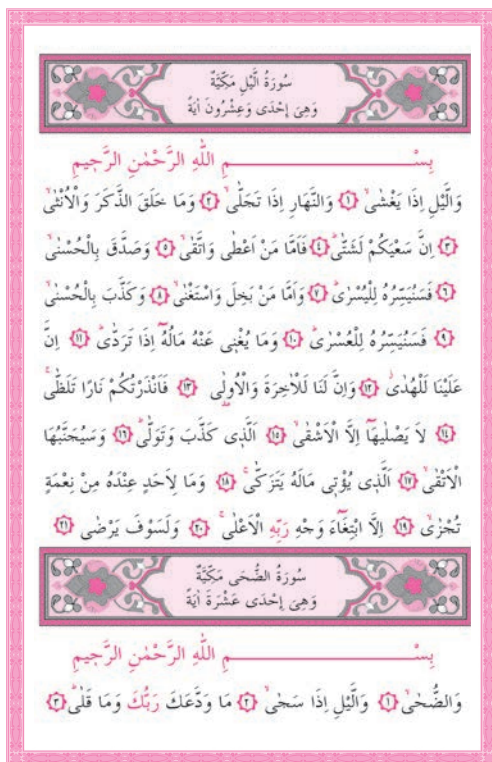 سُورَةُ الَّيْلِ مَكِّيَّةٌ
وَهِىَ إِحْدَى وَعِشْرُونَ اٰيَةً
بِسْمِ اللّٰهِ الرَّحْمٰنِ الرَّحِيمِ
وَالَّيْلِ اِذَا يَغْشٰىۙ ﴿١﴾ وَالنَّهَارِ اِذَا تَجَلّٰىۙ ﴿٢﴾ وَمَا خَلَقَ الذَّكَرَ وَالْاُنْثٰىۙ
﴿٣﴾ اِنَّ سَعْيَكُمْ لَشَتّٰىۜ ﴿٤﴾ فَاَمَّا مَنْ اَعْطٰى وَاتَّقٰىۙ ﴿٥﴾ وَصَدَّقَ بِالْحُسْنٰىۙ
﴿٦﴾ فَسَنُيَسِّرُهُ لِلْيُسْرٰىۜ ﴿٧﴾ وَاَمَّا مَنْ بَخِلَ وَاسْتَغْنٰىۙ ﴿٨﴾ وَكَذَّبَ بِالْحُسْنٰىۙ
﴿٩﴾ فَسَنُيَسِّرُهُ لِلْعُسْرٰىۜ ﴿١٠﴾ وَمَا يُغْنِى عَنْهُ مَالُهُٓ اِذَا تَرَدّٰىۜ ﴿١١﴾ اِنَّ
عَلَيْنَا لَلْهُدٰىۘ ﴿١٢﴾ وَاِنَّ لَنَا لَلْاٰخِرَةَ وَالْاُو۫لٰى ﴿١٣﴾ فَاَنْذَرْتُكُمْ نَارًا تَلَظّٰىۚ
﴿١٤﴾ لَا يَصْلٰيهَٓا اِلَّا الْاَشْقٰىۙ ﴿١٥﴾ اَلَّذِى كَذَّبَ وَتَوَلّٰىۜ ﴿١٦﴾ وَسَيُجَنَّبُهَا
الْاَتْقٰىۙ ﴿١٧﴾ اَلَّذِى يُؤْتِى مَالَهُ يَتَزَكّٰىۚ ﴿١٨﴾ وَمَا لِاَحَدٍ عِنْدَهُ مِنْ نِعْمَةٍ
تُجْزٰىۙ ﴿١٩﴾ اِلَّا ابْتِغَٓاءَ وَجْهِ رَبِّهِ الْاَعْلٰىۚ ﴿٢٠﴾ وَلَسَوْفَ يَرْضٰى ﴿٢١﴾
سُورَةُ الضُّحَى مَكِّيَّةٌ
وَهِىَ إِحْدَى عَشْرَةَ اٰيَةً
بِسْمِ اللّٰهِ الرَّحْمٰنِ الرَّحِيمِ
وَالضُّحٰىۙ ﴿١﴾ وَالَّيْلِ اِذَا سَجٰىۙ ﴿٢﴾ مَا وَدَّعَكَ رَبُّكَ وَمَا قَلٰىۜ ﴿٣﴾